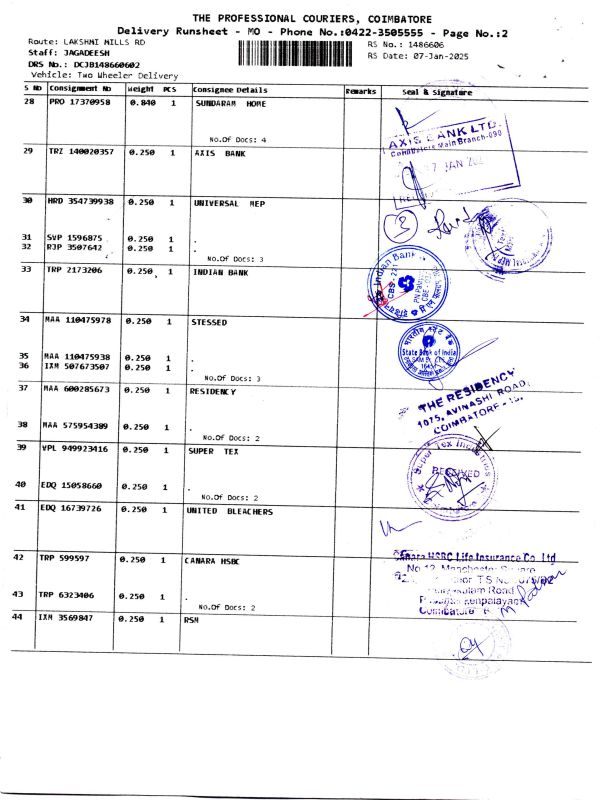 THE PROFESSIONAL COURIERS, COIMBATORE
Delivery Runsheet - MO - Phone No.:0422-3505555 - Page No.:2
Route: LAKSHMI MILLS RD
Staff: JAGADEESH
DRS No.: DCJB148660602
Vehicle: Two Wheeler Delivery
RS No.: 1486606
RS Date: 07-Jan-2025
S No Consignment No Weight PCS Consignee Details Remarks Seal & Signature
28 PRO 17370958 0.840 1 SUNDARAM HOME
No.Of Docs: 4
29 TRZ 140020357 0.250 1 AXIS BANK
AXIS BANK LTD.
Coimbatore Main Branch-090
7 JAN 202
30 HRD 354739938 0.250 1 UNIVERSAL MEP
3
31 SVP 1596875 0.250 1 .
32 RJP 3507642 0.250 1 .
No.Of Docs: 3
33 TRP 2173206 0.250 1 INDIAN BANK
Indian Bank
34 MAA 110475978 0.250 1 STESSED
State Bank of India
35 MAA 110475938 0.250 1 .
36 IXM 507673507 0.250 1 .
No.Of Docs: 3
37 MAA 600285673 0.250 1 RESIDENCY
THE RESIDENCY
1075, AVINASHI ROAD,
COIMBATORE - 18.
38 MAA 575954389 0.250 1 .
No.Of Docs: 2
39 VPL 949923416 0.250 1 SUPER TEX
Super Tex Industries
RECEIVED
40 EDQ 15058660 0.250 1 .
No.Of Docs: 2
41 EDQ 16739726 0.250 1 UNITED BLEACHERS
42 TRP 599597 0.250 1 CANARA HSBC
Canara HSBC Life Insurance Co. Ltd
No.12, Manchester Square
Coimbatore
43 TRP 6323406 0.250 1 .
No.Of Docs: 2
44 IXM 3569847 0.250 1 RSM